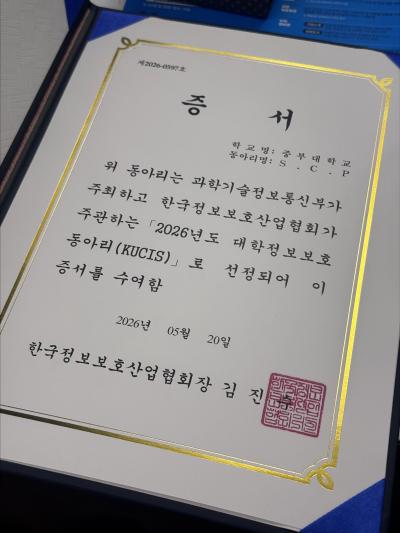 제2026-0597호
증 서
학 교 명: 중 부 대 학 교
동아리명: S . C . P
위 동아리는 과학기술정보통신부가
주최하고 한국정보보호산업협회가
주관하는 「2026년도 대학정보보호
동아리(KUCIS)」로 선정되어 이
증서를 수여함
2026년 05월 20일
한국정보보호산업협회장 김 진